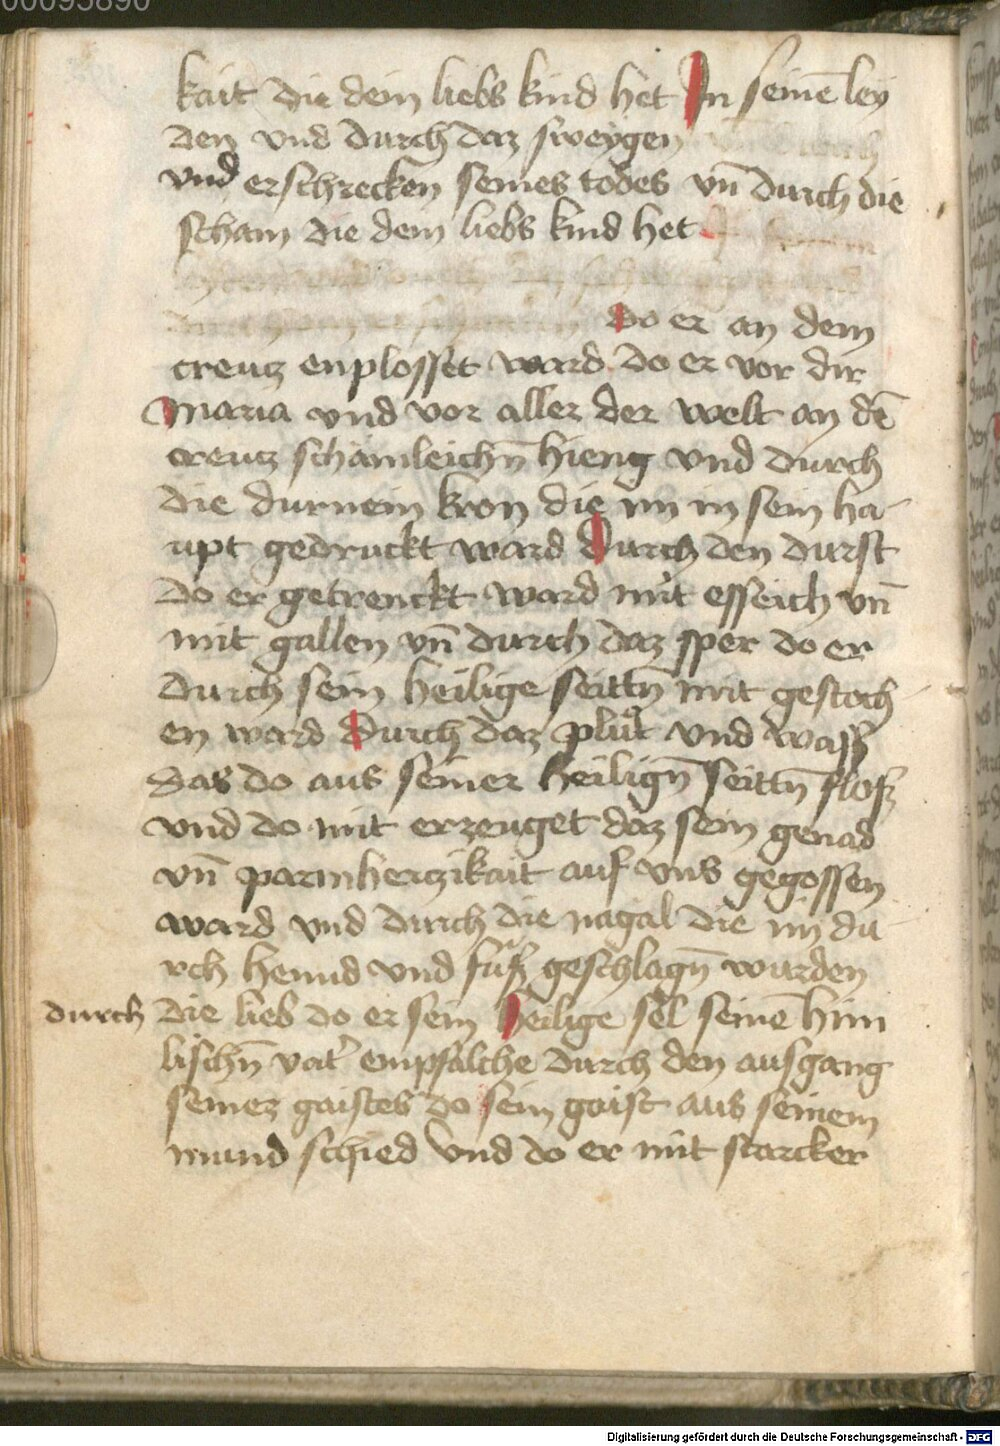 00095890
kait die dein liebs kind het In seinē ley
den vnd durch daz sweygen
vnd erschrecken seines todes vn̄ durch die
scham die dein liebs kind het
do er an dem
creucz enplosset ward do er vor dir
maria vnd vor aller der welt an dē
creucz schämleichn̄ hieng vnd durch
die durnein kron die im in sein ha-
upt gedruckt ward Durch den durst
do er getrenckt ward mit esseich vn̄
mit gallen vn̄ durch daz sper do er
durch sein heilige seittn̄ mit gestoch
en ward Durch daz plůt vnd wasß
das do aus seiner heilign̄ seittn̄ floß
vnd do mit erzeuget daz sein genad
vn̄ parmherczikait auf vns gegossen
ward vnd durch die nagal die im du
rch hennd vnd füß geschlagn̄ wurden
durch die lieb do er sein heilige sel seinē him
lischn̄ vat' empfalche durch den ausgang
seinez gaistes do sein gaist aus seinem
mund schied vnd do er mit starcker
Digitalisierung gefördert durch die Deutsche Forschungsgemeinschaft - DFG